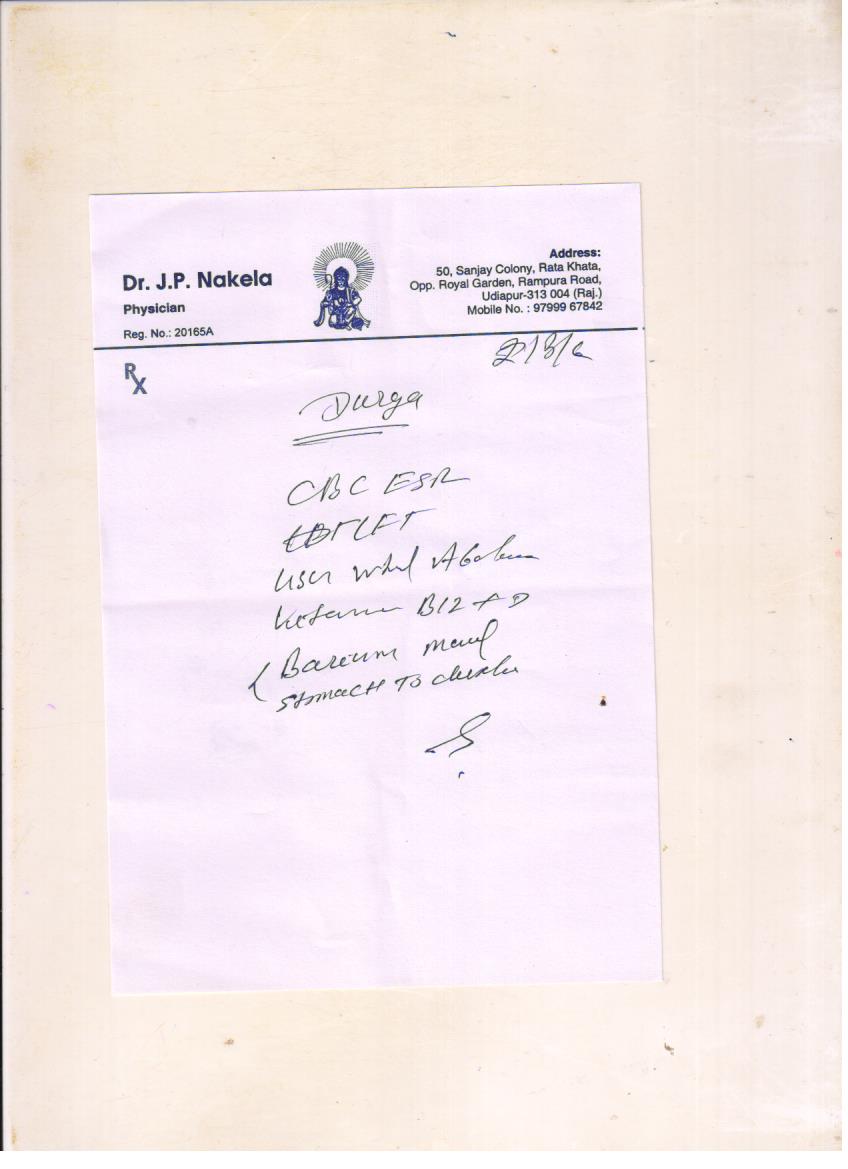 Dr. J.P. Nakela
Physician
Reg. No.: 20165A
Address:
50, Sanjay Colony, Rata Khata,
Opp. Royal Garden, Rampura Road,
Udiapur-313 004 (Raj.)
Mobile No. : 97999 67842
Rx
Durga
CBC ESR
B12 + D
Barium meal
Stomach To